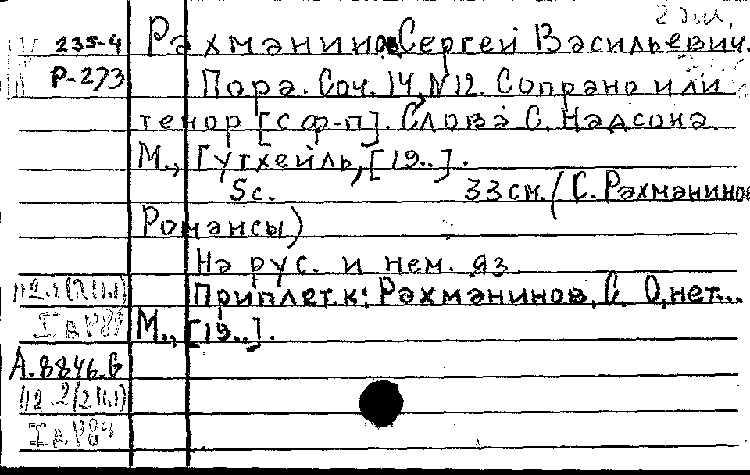 2 экз.
235-4 Рахманинов Сергей Васильевич.
Р-273 Пора. Соч. 14, N12. Сопрано или
тенор [с ф-п]. Слова С. Надсона
М., Гутхейль, [19..].
5с. 33 см. (С. Рахманинов
Романсы)
На рус. и нем. яз
Приплет. к: Рахманинов, С. О, нет...
М., [19..].
А.8846.G